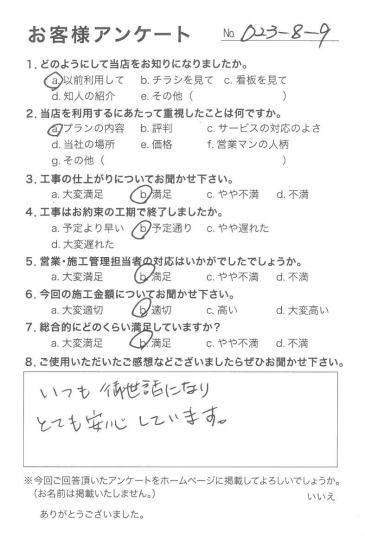 お客様アンケート No. 023-8-9
1. どのようにして当店をお知りになりましたか。
a. 以前利用して b. チラシを見て c. 看板を見て
d. 知人の紹介 e. その他( )
2. 当店を利用するにあたって重視したことは何ですか。
a. プランの内容 b. 評判 c. サービスの対応のよさ
d. 当社の場所 e. 価格 f. 営業マンの人柄
g. その他( )
3. 工事の仕上がりについてお聞かせ下さい。
a. 大変満足 b. 満足 c. やや不満 d. 不満
4. 工事はお約束の工期で終了しましたか。
a. 予定より早い b. 予定通り c. やや遅れた
d. 大変遅れた
5. 営業・施工管理担当者の対応はいかがでしたでしょうか。
a. 大変満足 b. 満足 c. やや不満 d. 不満
6. 今回の施工金額についてお聞かせ下さい。
a. 大変適切 b. 適切 c. 高い d. 大変高い
7. 総合的にどのくらい満足していますか?
a. 大変満足 b. 満足 c. やや不満 d. 不満
8. ご使用いただいたご感想などございましたらぜひお聞かせ下さい。
いつも御世話になり
とても安心しています。
※今回ご回答頂いたアンケートをホームページに掲載してよろしいでしょうか。
(お名前は掲載いたしません。) いいえ
ありがとうございました。